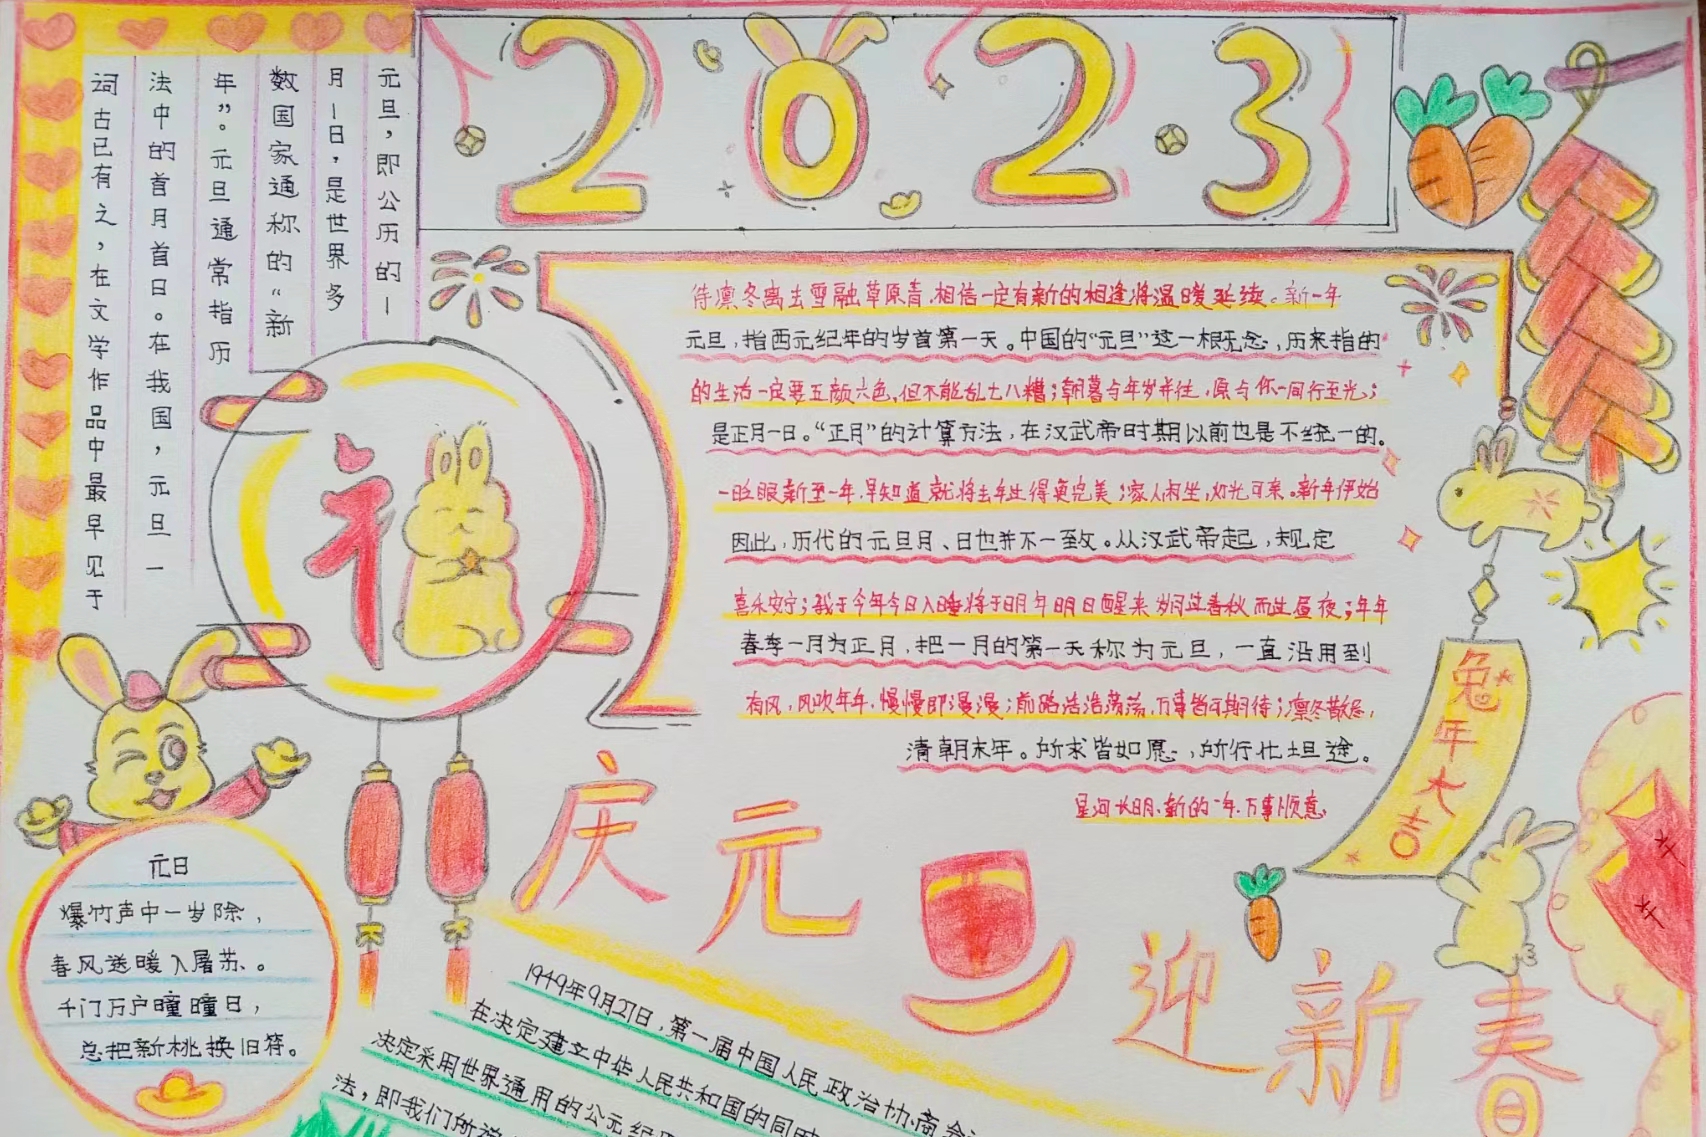 2023
元旦，即公历的一
月一日，是世界多
数国家通称的“新
年”。元旦通常指历
法中的首月首日。在我国，元旦一
词古已有之，在文学作品中最早见于
待凛冬离去雪融草原青，相信一定有新的相逢将温暖延续。新一年
元旦，指西元纪年的岁首第一天。中国的“元旦”这一概念，历来指的
的生活一定要五颜六色，但不能乱七八糟；朝暮与年岁并往，愿与你一同行至光；
是正月一日。“正月”的计算方法，在汉武帝时期以前也是不统一的。
一眨眼新至一年，早知道就将去年过得更完美；家人闲坐，灯光可亲。新年伊始
因此，历代的元旦月、日也并不一致。从汉武帝起，规定
喜乐安宁；我于今年今日入睡将于明年明日醒来 岁问过春秋而生昼夜；年年
春季一月为正月，把一月的第一天称为元旦，一直沿用到
有风，风吹年年，慢慢即漫漫；前路浩浩荡荡，万事皆可期待；凛冬散尽，
清朝末年。所求皆如愿，所行化坦途。
星河长明，新的一年，万事顺意
兔年大吉
福
庆元旦
迎新春
元日
爆竹声中一岁除，
春风送暖入屠苏。
千门万户曈曈日，
总把新桃换旧符。
1949年9月27日，第一届中国人民政治协商会
在决定建立中华人民共和国的同时
决定采用世界通用的公元纪
法，即我们所